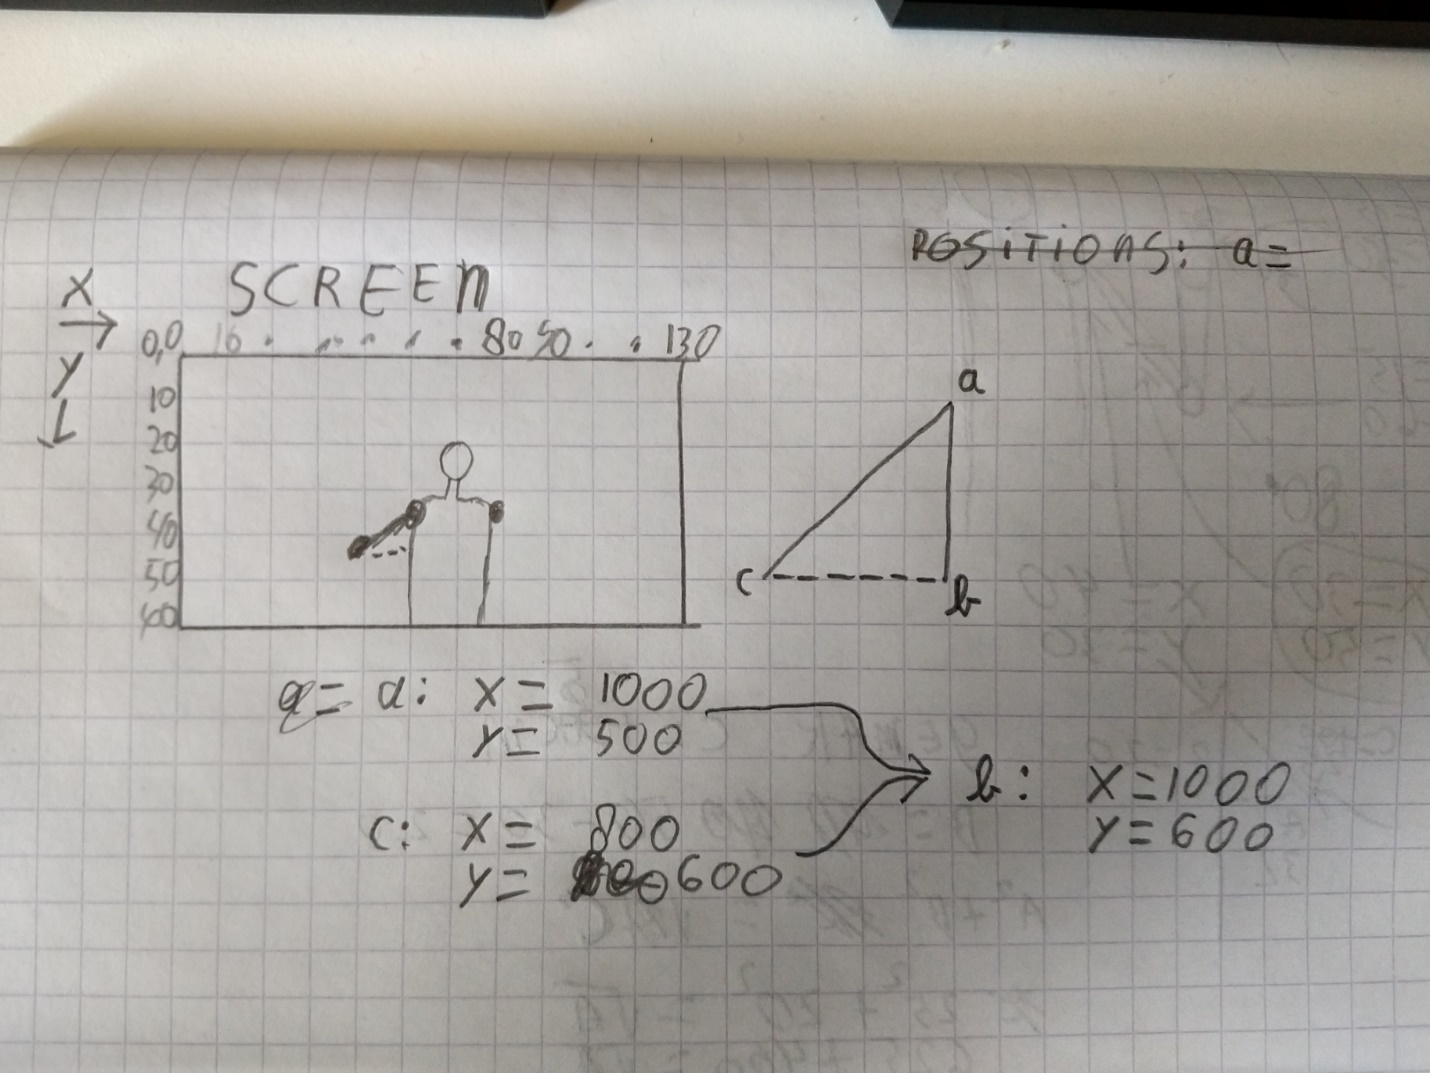 POSITIONS: a=
X SCREEN
0,0 10 80 90 130
Y
10
20
30
40
50
60
a
c b
a= a: X= 1000
Y= 500
b: X=1000
Y=600
c: X= 800
Y= 600